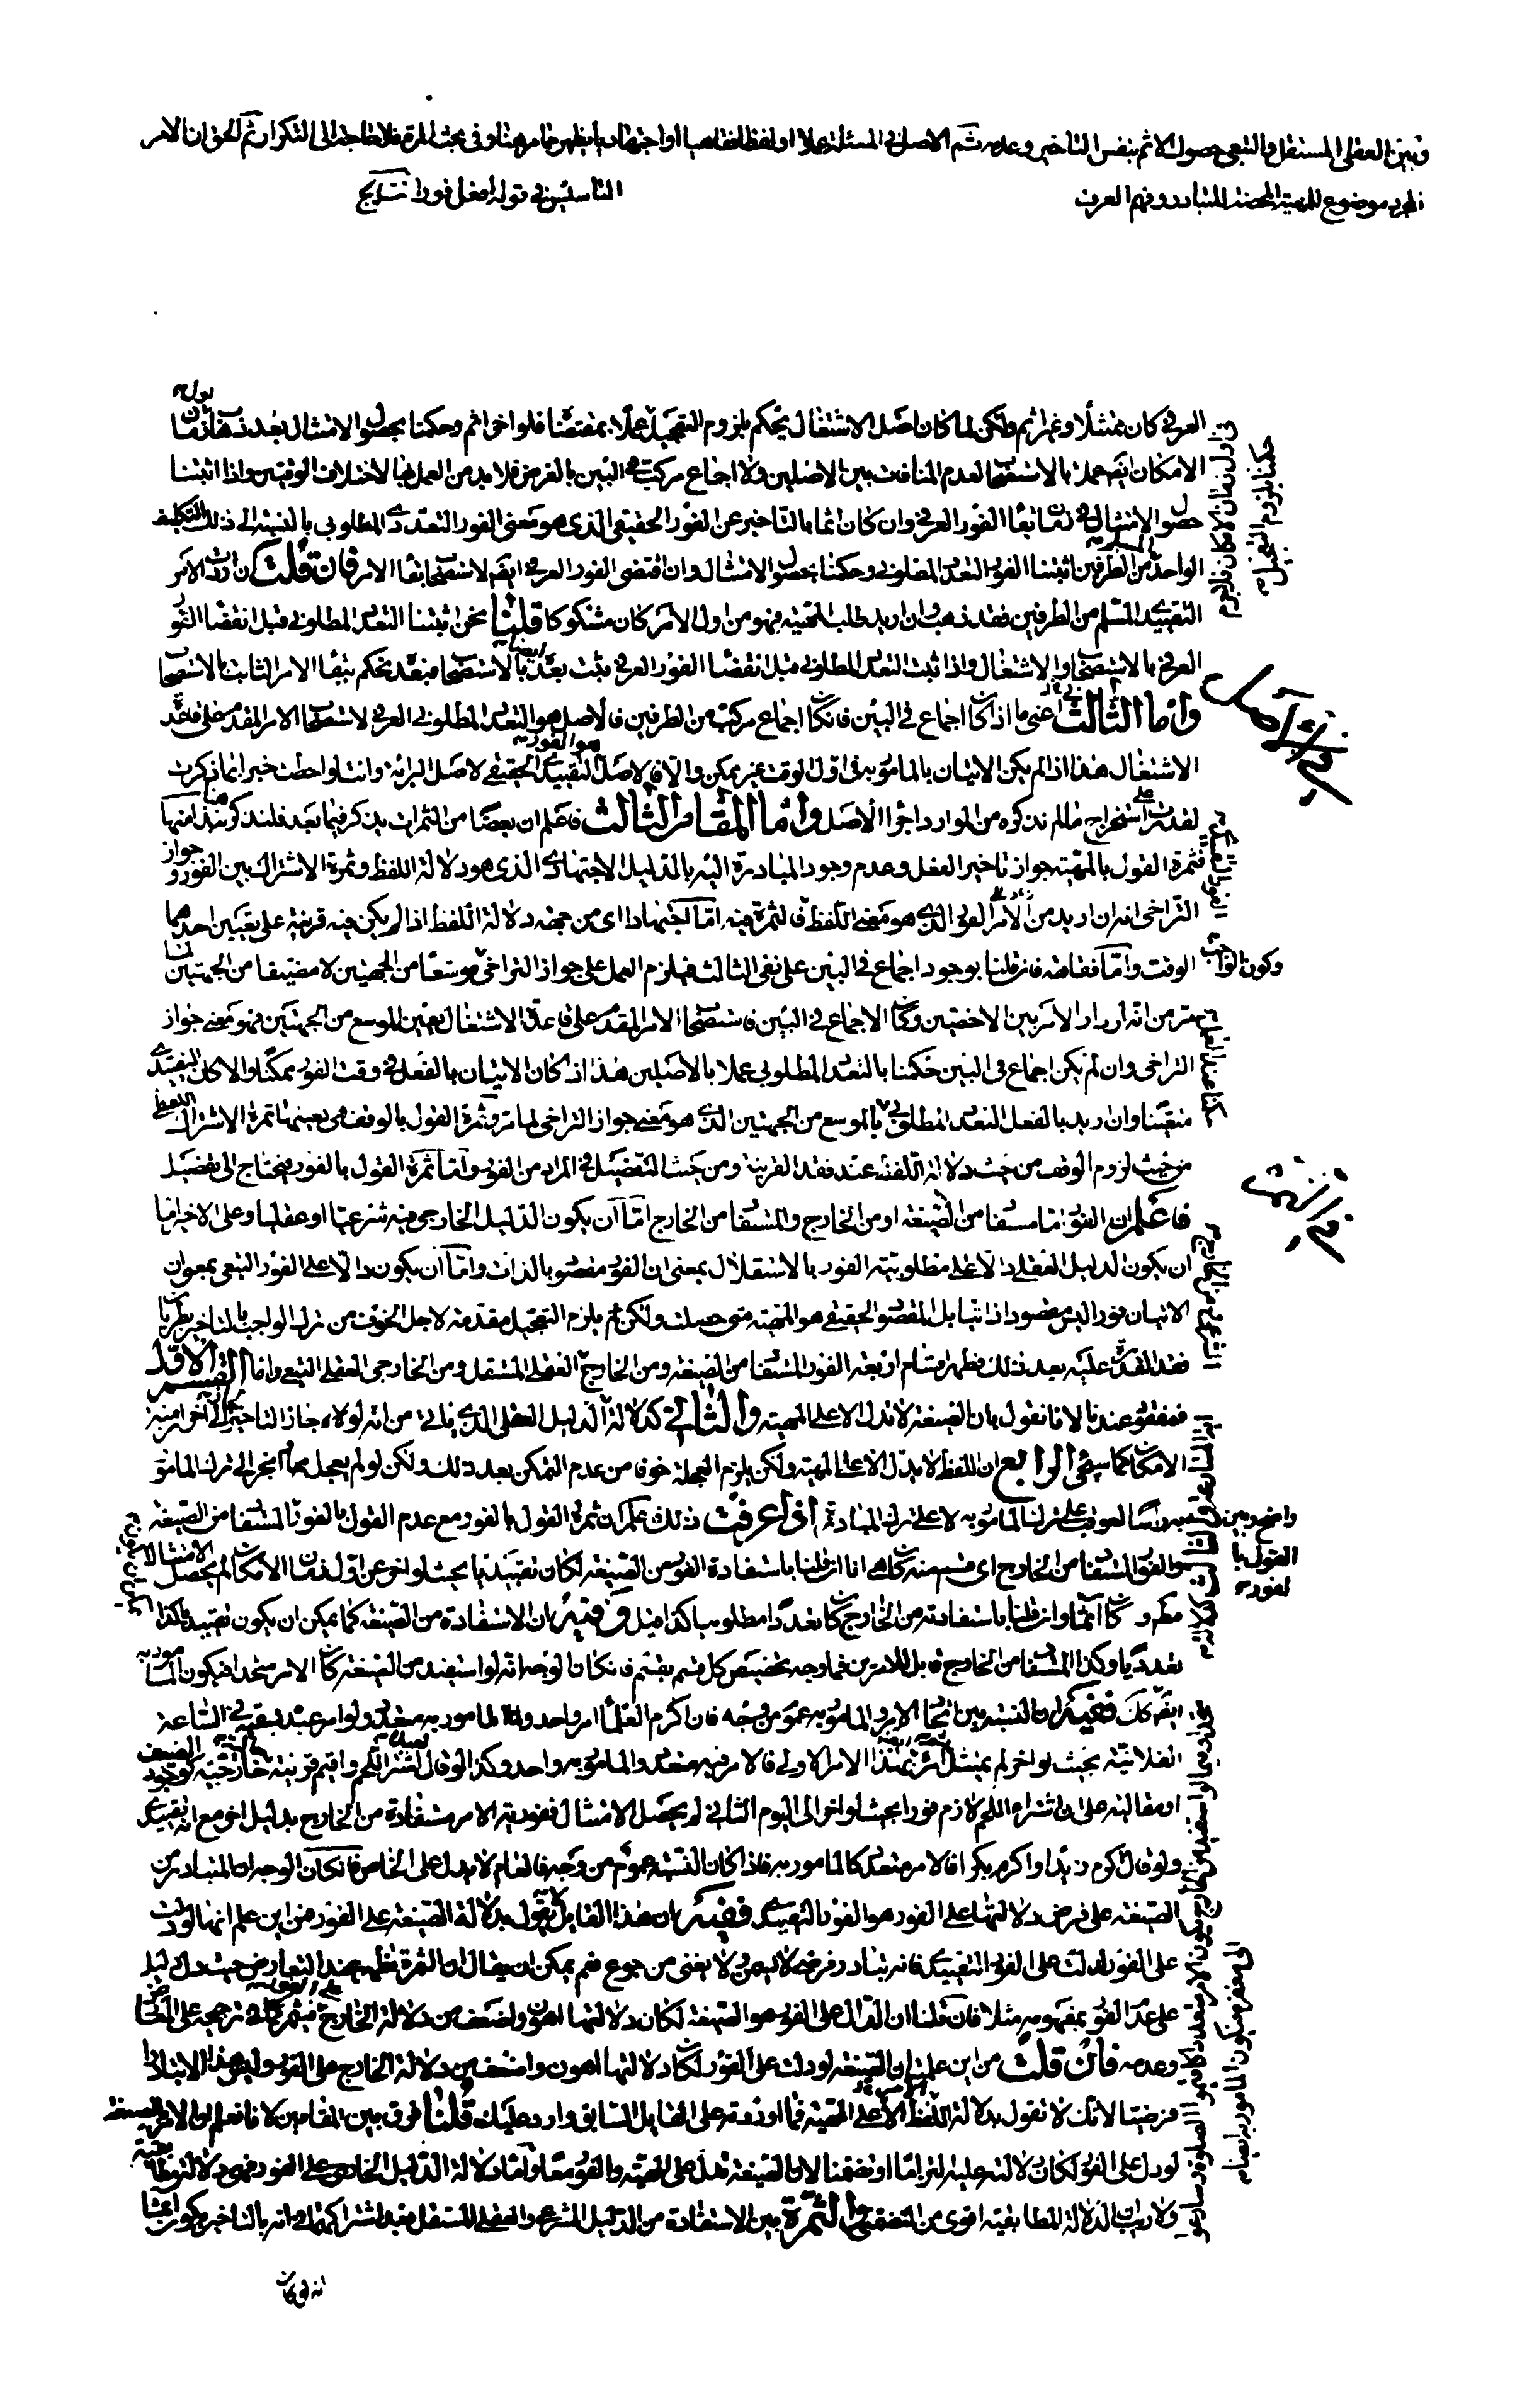 وبين العقلي المستقل والتبعي حصول الاثم بنفس التأخير وعدمه ثم الاصل في المسئلة عملا او لفظا فقاهيا او اجتهاديا يظهر مما مر هنا وفي بحث المرة فلا حاجة الى التكرار ثم الحق ان الامر
موضوع للمهية المحضة للتبادر وفهم العرف
التاسيس في قوله افعل فورا نتايج
العرفي كان ممتثلا وغير اثم ولكن لما كان اصل الاشتغال يحكم بلزوم التعجيل عملا بمقتضاه فلو اخر اثم وحكمنا بحصول الامتثال بعد ذهاب زمان
الامكان ايضا عملا بالاستصحاب لعدم المنافات بين الاصلين ولا اجماع مركب في البين بالفرض فلا بد من العمل بهما لاختلاف الوقتين واذا اثبتنا
حصول الامتثال في زمان بقاء الفور العرفي وان كان اثما بالتاخير عن الفور الحقيقي الذي هو معنى الفور التعددي المطلوبي بالنسبة الى ذلك التكليف
الواحد من الطرفين اثبتنا الفور التعدد المطلوبي وحكمنا بحصول الامتثال وان اقتضى الفور العرفي ايضا لاستصحاب بقاء الامر فان قلت ان اريد الامر
التقييد المسلم من الطرفين فقد ذهب وان اريد طلب المهية فهو من اول الامر كان مشكوكا قلنا نحن اثبتنا التعدد المطلوبي قبل انقضاء الفور
العرفي بالاستصحاب والاشتغال واذا ثبت التعدد المطلوبي قبل انقضاء الفور العرفي ثبت بعده بالاستصحاب فبعد نحكم ببقاء الامر الثابت بالاستصحاب
واما الثالث اعني ما اذا كان اجماع في البين فان كان اجماع مركب من الطرفين فالاصل هو التعدد المطلوبي العرفي لاستصحاب الامر المقدم على قاعدة
الاشتغال هذا اذا لم يكن الاتيان بالمامور به في اول الوقت غير ممكن والا فالاصل التقييد الحقيقي لاصل البراءة وانت لو احطت خبرا بما ذكرت
لقدرت على استخراج ما لم نذكره من الموارد اجراء الاصل واما المقام الثالث فاعلم ان بعضا من الثمرات يذكر فيما بعد فلنذكر هنا نبذا منها
فثمرة القول بالمهية جواز تاخير الفعل وعدم وجوب المبادرة اليه بالدليل الاجتهادي الذي هو دلالة اللفظ وثمرة الاشتراك بين الفور وجواز
التراخي انه ان اريد من الامر الفور الذي هو معنى اللفظ فالثمرة فيه اما اجتهادا اي من جهة دلالة اللفظ اذا لم يكن فيه قرينة على تعيين احدهما
الوقت واما فقاهة فان قلنا بوجود اجماع في البين على نفي الثالث فيلزم العمل على جواز التراخي موسعا من الجهتين لا مضيقا من الجهتين لما
مر من انه اذا دار الامر بين الاخصين وكان الاجماع في البين فاستصحاب الامر المقدم على قاعدة الاشتغال يعين الموسع من الجهتين فهو معنى جواز
التراخي وان لم يكن اجماع في البين حكمنا بالتعدد المطلوبي عملا بالاصلين هذا اذا كان الاتيان بالفعل في وقت الفور ممكنا والا كان التقييدي
متعينا وان اريد بالفعل التعدد المطلوبي بالموسع من الجهتين الذي هو معنى جواز التراخي لما مر وثمرة القول بالوقف هي بعينها ثمرة الاشتراك اللفظي
من حيث لزوم الوقف من حيث دلالة اللفظ عند فقد القرينة ومن حيث التفصيل في المراد من الفور واما ثمرة القول بالفور فيحتاج الى تفصيل
فاعلم ان الفور اما مستفاد من الصيغة او من الخارج والمستفاد من الخارج اما ان يكون الدليل الخارجي فيه شرعيا او عقليا وعلى الاخير اما
ان يكون الدليل العقلي دالا على مطلوبية الفور بالاستقلال بمعنى ان الفور مقصود بالذات واما ان يكون دالا على الفور التبعي بمعنى ان
الاتيان فورا ليس مقصودا ذاتيا بل المقصود الحقيقي هو المهية متى حصلت ولكن يلزم التعجيل مقدمة لاجل الخوف من ترك الواجب بالتاخير بطريان
فقد القدرة عليه بعد ذلك فظهر اقسام اربعة الفور المستفاد من الصيغة ومن الخارج العقلي المستقل ومن الخارجي العقلي التبعي واما القسم الاول
فمفقود عندنا لانا نقول بان الصيغة لا تدل الا على المهية والثاني كدلالة الدليل العقلي الذي ياتي من انه لولاه جاز التاخير الى اخر ازمنة
الامكان كما سيجيء الرابع ان اللفظ لا يدل الا على المهية ولكن يلزم العجلة خوفا من عدم التمكن بعد ذلك ولكن لو لم يعجل انجر الى ترك المامور
به راسا لعوقب على ترك المامور به لا على ترك المبادرة اذا عرفت ذلك علم ان ثمرة القول بالفور مع عدم القول بالفور المستفاد من الصيغة
والفور المستفاد من الخارج اي قسم منه كان هي انا ان قلنا باستفادة الفور من الصيغة لكان تقييديا بحيث لو اخر عن اول زمان الامكان لم يحصل الامتثال
وكان اثما وان قلنا باستفادته من الخارج كان تعددا مطلوبيا كذا قيل وفيه ان الاستفادة من الصيغة كما يمكن ان يكون تقييديا كذا
تعدديا وكذا المستفاد من الخارج قابل للامرين فما وجه تخصيص كل قسم بقسم فان كان الوجه انه لو استفيد من الصيغة كان الامر متحدا فيكون المامور به
ايضا كذلك ففيه ان النسبة بين اتحاد الامر والمامور به عموم من وجه فان اكرم العلماء امر واحد والمامور به متعدد ولو امر عبده بفعل في الساعة
الفلانية بحيث لو اخر لم يمتثل ثم بهذا الامر الاولي فالامر فيه متعدد والمامور به واحد وكذا لو قال اشتر اللحم واقيم قرينة خارجية كوجود الضيف
او مقالية على ان اشتراء اللحم لازم فورا بحيث لو اخر الى اليوم الثاني لم يحصل الامتثال ففورية الامر مستفادة من الخارج بدليل اخر مع انه تقييدي
ولو قال اكرم زيدا واكرم بكرا فالامر متعدد كالمامور به فاذا كان النسبة عموم من وجه فالعام لا يدل على الخاص فان كان الوجه ان المتبادر من
الصيغة على فرض دلالتها على الفور هو الفور التقييدي ففيه ان هذا القايل لا يقول بدلالة الصيغة على الفور فمن اين علم انها لو دلت
على الفور لدلت على الفور التقييدي فانه تبادر فرضي لا يسمن ولا يغني من جوع نعم يمكن ان يقال ان الثمرة تظهر عند التعارض حيث دل دليل
على عدم الفور بمفهومه مثلا فان قلنا ان الدال على الفور هو الصيغة لكان دلالتها اهون واضعف من دلالة الخارج
وعدمه فان قلت من اين علمت ان الصيغة لو دلت على الفور لكان دلالتها اهون واضعف من دلالة الخارج على الفور وليس هذا الا تبادرا
فرضيا لانك لا تقول بدلالة اللفظ الا على المهية فما اوردته على القايل السابق وارد عليك قلنا فرق بين المقامين لانا نعلم ان الامر والصيغة
لو دل على الفور لكان دلالته عليه التزاما او تضمنا لان الصيغة تدل على المهية والفور معا واما دلالة الدليل الخارجي على الفور فهو دلالة مطابقية
ولا ريب ان الدلالة المطابقية اقوى من التضمني والثمرة بين الاستفادة من الدليل الشرعي والعقلي المستقل بعد اشتراكهما في انه بالتاخير يكون اثما
انه لو كان